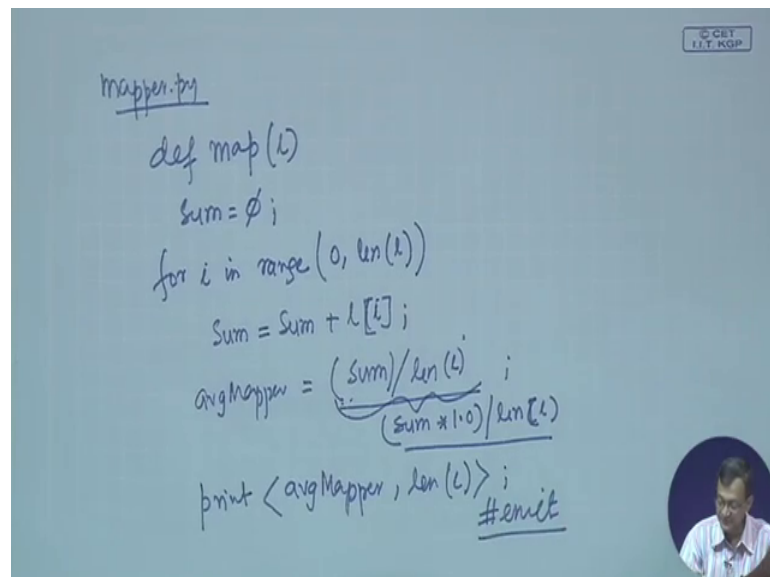 © CET
I.I.T. KGP
mapper.py
def map(l)
sum = ∅ ;
for i in range (0, len(l))
sum = sum + l[i] ;
avgMapper = (sum)/len(l) ;
(sum * 1.0)/len(l)
print <avgMapper, len(l)> ;
#emit